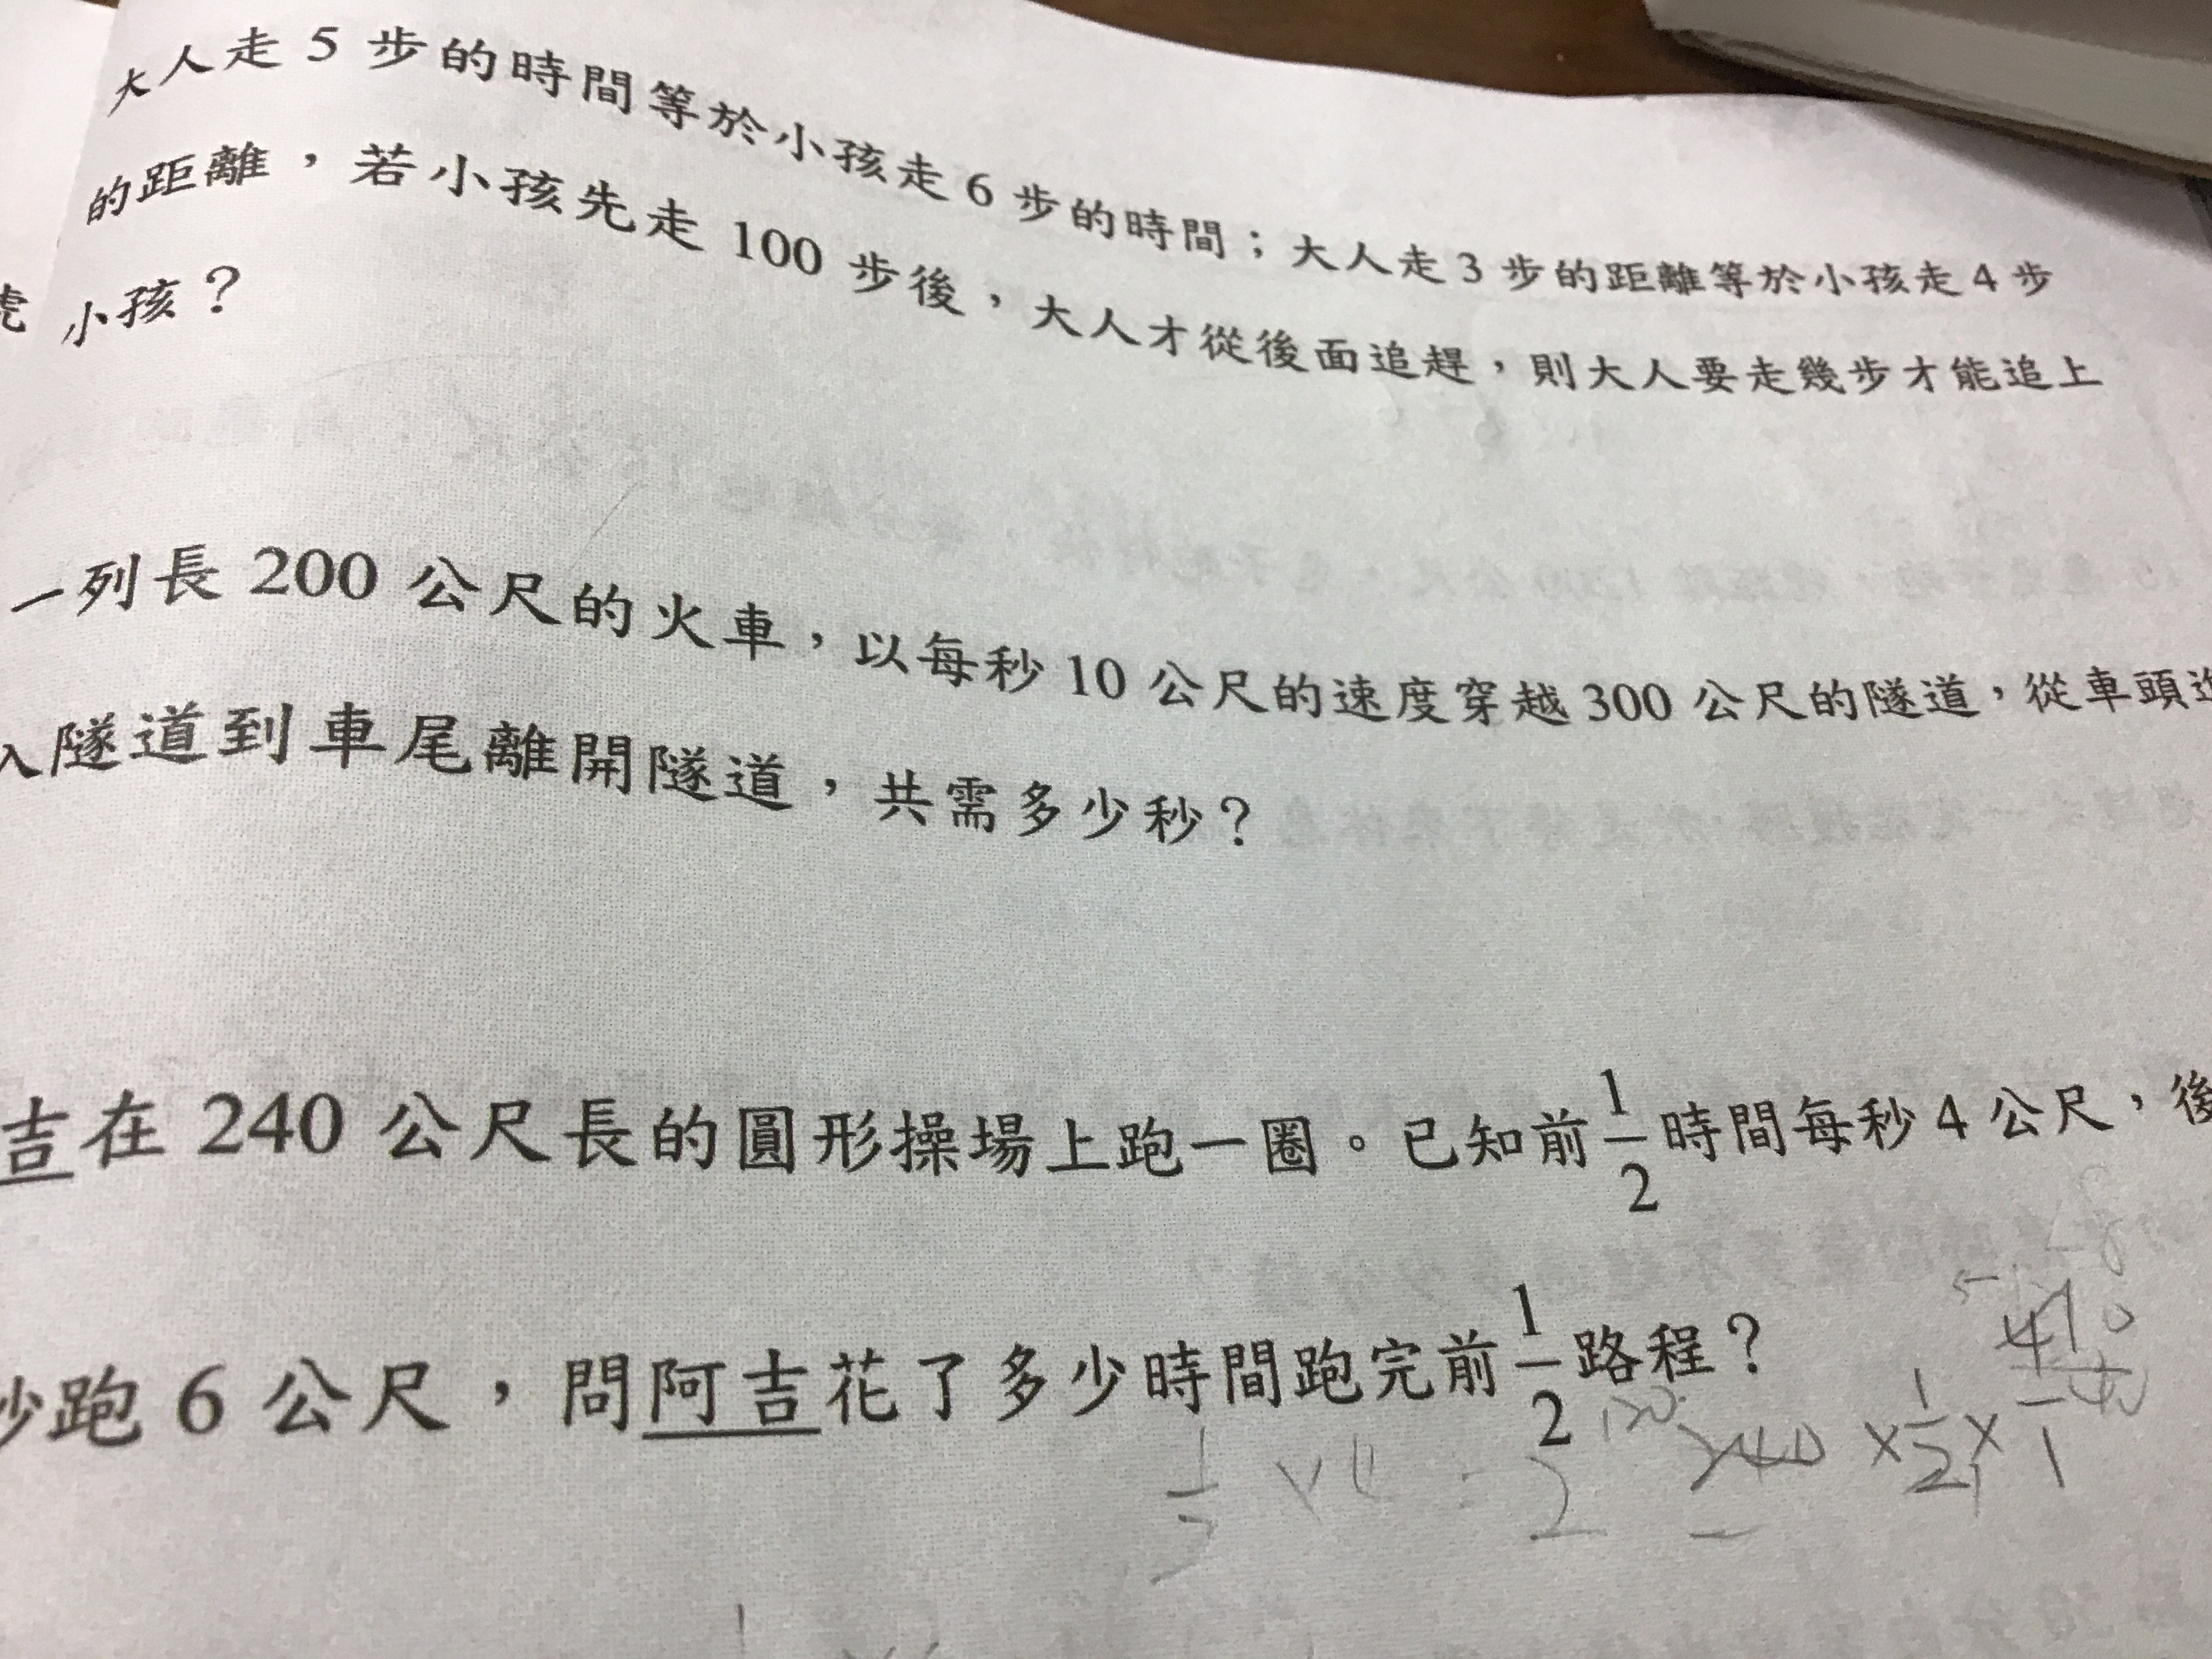 大人走 5 步的時間等於小孩走 6 步的時間；大人走 3 步的距離等於小孩走 4 步
的距離，若小孩先走 100 步後，大人才從後面追趕，則大人要走幾步才能追上
小孩？
一列長 200 公尺的火車，以每秒 10 公尺的速度穿越 300 公尺的隧道，從車頭進
入隧道到車尾離開隧道，共需多少秒？
吉在 240 公尺長的圓形操場上跑一圈。已知前 1/2 時間每秒 4 公尺，後
秒跑 6 公尺，問阿吉花了多少時間跑完前 1/2 路程？